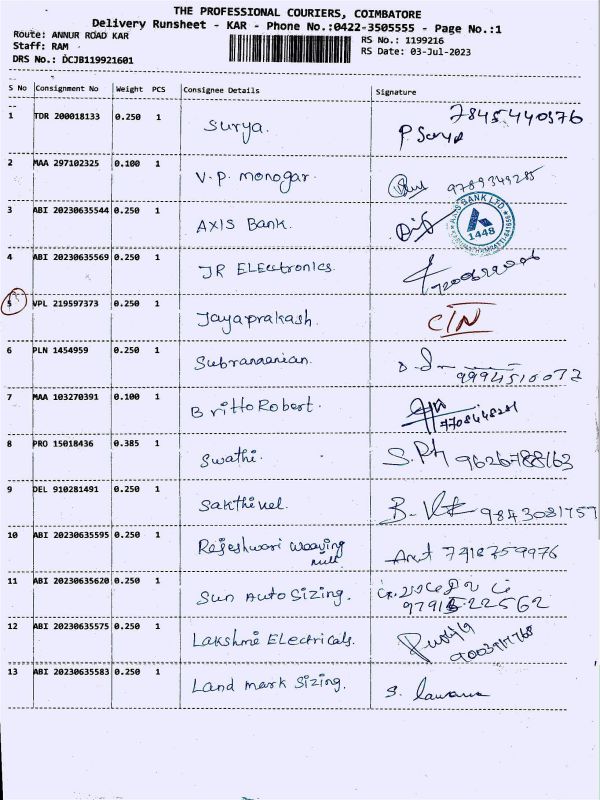 THE PROFESSIONAL COURIERS, COIMBATORE
Delivery Runsheet - KAR - Phone No.:0422-3505555 - Page No.:1
Route: ANNUR ROAD KAR
RS No.: 1199216
Staff: RAM
RS Date: 03-Jul-2023
DRS No.: DCJB119921601
S No Consignment No Weight PCS Consignee Details Signature
1 TDR 200018133 0.250 1 Surya. P Surya 7845440376
2 MAA 297102325 0.100 1 V.P. monogar. 9789349285
3 ABI 20230635544 0.250 1 AXIS Bank. AXIS BANK LTD 1448
4 ABI 20230635569 0.250 1 JR ELEctronics.
5 VPL 219597373 0.250 1 Jayaprakash. CIN
6 PLN 1454959 0.250 1 Subramanian. 9994510072
7 MAA 103270391 0.100 1 Britto Robert. 7708448281
8 PRO 15018436 0.385 1 Swathi. 9626788163
9 DEL 910281491 0.250 1 Sakthivel. 9843081757
10 ABI 20230635595 0.250 1 Rajeshwari weaving mill 7418759976
11 ABI 20230635620 0.250 1 Sun Auto Sizing.
12 ABI 20230635575 0.250 1 Lakshmi Electricals.
13 ABI 20230635583 0.250 1 Land mark Sizing.